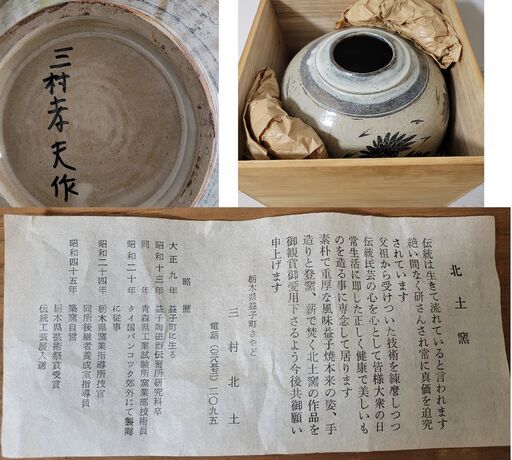 三村孝夫作
北土窯
伝統は生きて流れていると言われます
絶い間なく研さんされ常に真価を追究
されています
父祖から受けついた技術を練磨しつつ
伝統民芸の心を心として皆様大衆の日
常生活に即した正しく健康で美しいも
のを造る事に専念して居ります
素朴で重厚な風味益子焼本来の姿、手
造りと登窯、薪で焚く北土窯の作品を
御観賞御愛用下さるよう今後共御願い
申上げます
栃木県益子町さやど
三村北土
電話(二)二〇九五
略歴
大正九年 益子町に生る
昭和十三年 益子陶磁器伝習所研究科卒
同年 青森県工業試験所窯業部技術員
昭和二十年 タイ国バンコックの郊外にて製陶
に従事
昭和二十四年 栃木県窯業指導所技官
同所後継者養成室指導員
築窯自営
昭和四十五年 栃木県芸術祭賞受賞
伝統工芸展入選